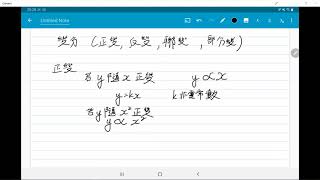 Untitled Note
變分 (正變, 反變, 聯變, 部分變)
正變
若 y 隨 x 正變 y ∝ x
y=kx k 非零常數
若 y 隨 x² 正變
y ∝ x²